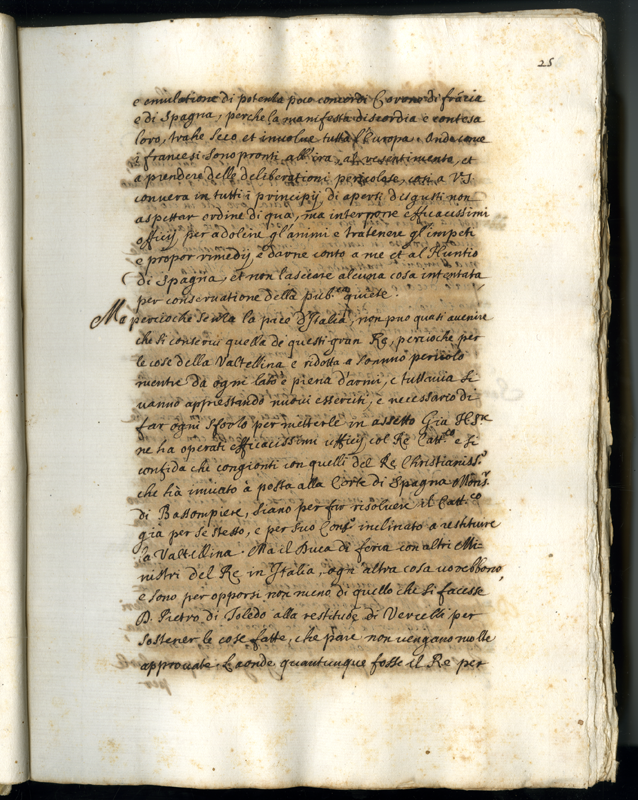 25
e emulatione di potenza poco concordi Corone di frãcia
e di Spagna, perche la manifesta discordia e contesa
loro, trahe seco et involve tutta l'Europa. Onde come
i francesi sono pronti all'ira, al resentimento, et
a prendere delle deliberationi pericolose, cosi a V.S.
converra in tutti i principij di aperti disgusti non
aspettar ordine di qua, ma interporre efficacissimi
officij per adolcire gl'animi e tratenere gl'impeti
e propor rimedij e darne conto a me et al Nuntio
di Spagna, et non lasciare alcuna cosa intentata
per conservatione della pub.ca quiete.
Ma percioche senza la pace d'Italia, non puo quasi avenire
che si conservi quella de questi gran Re, percioche per
le cose della Valtellina e ridotta a sommo pericolo
mentre da ogni lato e piena d'armi, e tuttavia si
vanno apprestando nuovi esserciti, e necessario di
far ogni sforzo per metterle in assetto Gia
ne ha operati efficacissimi ufficij col Re Catt.co e si
confida che congionti con quelli del Re Christianiss.o
che hà inviato à posta alla Corte di Spagna Mons.r
di Bassompiere, siano per far risolvere il Catt.co
gia per se stesso, e per suo Cons.o inclinato a restituire
la Valtellina. Ma il Duca di feria con altri Mi-
nistri del Re in Italia, ogn'altra cosa vorebbono,
e sono per opporsi non meno di quello che si facesse
D. Pietro di Toledo alla restituẽ di Vercelli per
sostener le cose fatte, che pare non vengano molto
approvate. Laonde quantunque fosse il Re per
per